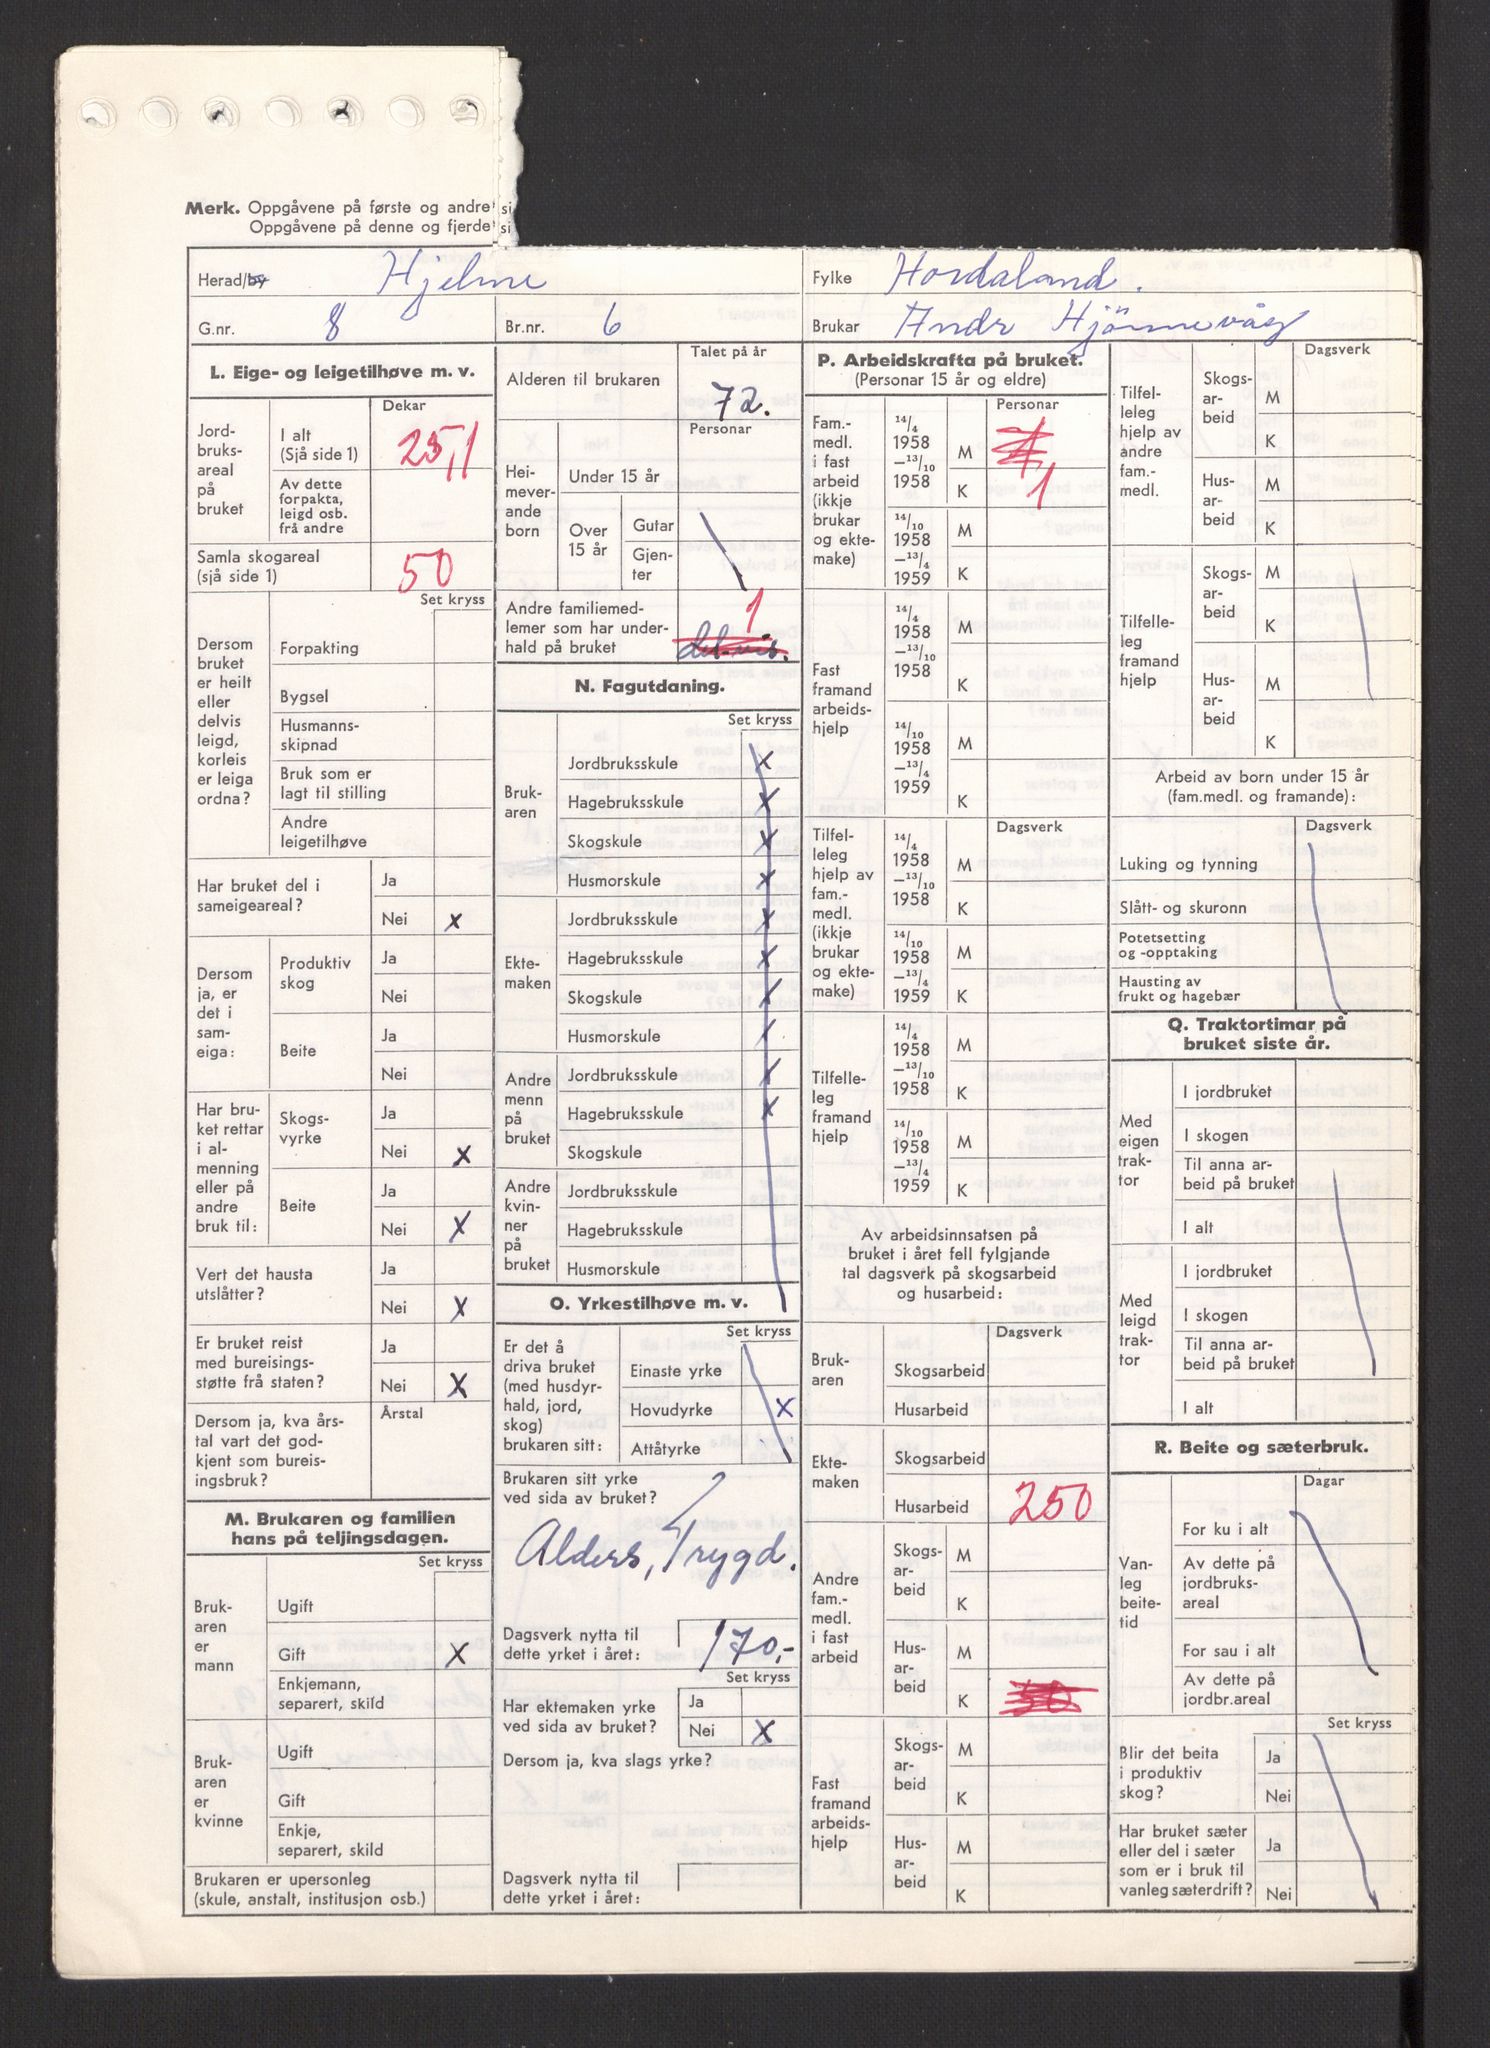 Merk. Oppgåvene på første og andre si
Oppgåvene på denne og fjerde si
Herad/by Hjelme
Fylke Hordaland.
G.nr. 8 Br.nr. 6
Brukar Andr Hjönnevåg
L. Eige- og leigetilhøve m. v.
Dekar
Jord-
bruks-
areal
på
bruket
I alt
(Sjå side 1) 25,1
Av dette
forpakta,
leigd osb.
frå andre
Samla skogareal
(sjå side 1) 50
Set kryss
Dersom
bruket
er heilt
eller
delvis
leigd,
korleis
er leiga
ordna?
Forpakting
Bygsel
Husmanns-
skipnad
Bruk som er
lagt til stilling
Andre
leigetilhøve
Har bruket del i
sameigeareal?
Ja
Nei x
Dersom
ja, er
det i
sam-
eiga:
Produktiv
skog
Ja
Nei
Beite
Ja
Nei
Har bru-
ket rettar
i al-
menning
eller på
andre
bruk til:
Skogs-
vyrke
Ja
Nei x
Beite
Ja
Nei x
Vert det hausta
utslåtter?
Ja
Nei x
Er bruket reist
med bureisings-
støtte frå staten?
Ja
Nei x
Dersom ja, kva års-
tal vart det god-
kjent som bureis-
ingsbruk?
Årstal
M. Brukaren og familien
hans på teljingsdagen.
Set kryss
Bruk-
aren
er
mann
Ugift
Gift x
Enkjemann,
separert, skild
Bruk-
aren
er
kvinne
Ugift
Gift
Enkje,
separert, skild
Brukaren er upersonleg
(skule, anstalt, institusjon osb.)
Talet på år
Alderen til brukaren 72.
Personar
Hei-
mever-
ande
born
Under 15 år
Over
15 år
Gutar
Gjen-
ter
Andre familiemed-
lemer som har under-
hald på bruket
1
delvis.
N. Fagutdaning.
Set kryss
Bruk-
aren
Jordbruksskule x
Hagebruksskule x
Skogskule x
Husmorskule x
Ekte-
maken
Jordbruksskule x
Hagebruksskule x
Skogskule x
Husmorskule
Andre
menn
på
bruket
Jordbruksskule x
Hagebruksskule x
Skogskule
Andre
kvin-
ner
på
bruket
Jordbruksskule
Hagebruksskule
Husmorskule
O. Yrkestilhøve m. v.
Set kryss
Er det å
driva bruket
(med husdyr-
hald, jord,
skog)
brukaren sitt:
Einaste yrke
Hovudyrke x
Attåtyrke
Brukaren sitt yrke
ved sida av bruket?
Alders, Trygd.
Dagsverk nytta til
dette yrket i året: 170,-
Set kryss
Har ektemaken yrke
ved sida av bruket?
Ja
Nei x
Dersom ja, kva slags yrke?
Dagsverk nytta til
dette yrket i året:
P. Arbeidskrafta på bruket.
(Personar 15 år og eldre)
Personar
Fam.-
medl.
i fast
arbeid
(ikkje
brukar
og ekte-
make)
14/4
1958
—13/10
1958
M
K 1
14/10
1958
—13/4
1959
M
K
Fast
framand
arbeids-
hjelp
14/4
1958
—13/10
1958
M
K
14/10
1958
—13/4
1959
M
K
Dagsverk
Tilfel-
leleg
hjelp av
fam.-
medl.
(ikkje
brukar
og ekte-
make)
14/4
1958
—13/10
1958
M
K
14/10
1958
—13/4
1959
M
K
Tilfelle-
leg
framand
hjelp
14/4
1958
—13/10
1958
M
K
14/10
1958
—13/4
1959
M
K
Av arbeidsinnsatsen på
bruket i året fell fylgjande
tal dagsverk på skogsarbeid
og husarbeid:
Dagsverk
Bruk-
aren
Skogsarbeid
Husarbeid
Ekte-
maken
Skogsarbeid
Husarbeid 250
Andre
fam.-
medl.
i fast
arbeid
Skogs-
ar-
beid
M
K
Hus-
ar-
beid
M
K 50
Fast
framand
arbeids-
hjelp
Skogs-
ar-
beid
M
K
Hus-
ar-
beid
M
K
Dagsverk
Tilfel-
leleg
hjelp av
andre
fam.-
medl.
Skogs-
ar-
beid
M
K
Hus-
ar-
beid
M
K
Tilfelle-
leg
framand
hjelp
Skogs-
ar-
beid
M
K
Hus-
ar-
beid
M
K
Arbeid av born under 15 år
(fam.medl. og framande):
Dagsverk
Luking og tynning
Slått- og skuronn
Potetsetting
og -opptaking
Hausting av
frukt og hagebær
Q. Traktortimar på
bruket siste år.
Med
eigen
trak-
tor
I jordbruket
I skogen
Til anna ar-
beid på bruket
I alt
Med
leigd
trak-
tor
I jordbruket
I skogen
Til anna ar-
beid på bruket
I alt
R. Beite og sæterbruk.
Dagar
Van-
leg
beite-
tid
For ku i alt
Av dette på
jordbruks-
areal
For sau i alt
Av dette på
jordbr.areal
Set kryss
Blir det beita
i produktiv
skog?
Ja
Nei
Har bruket sæter
eller del i sæter
som er i bruk til
vanleg sæterdrift?
Ja
Nei